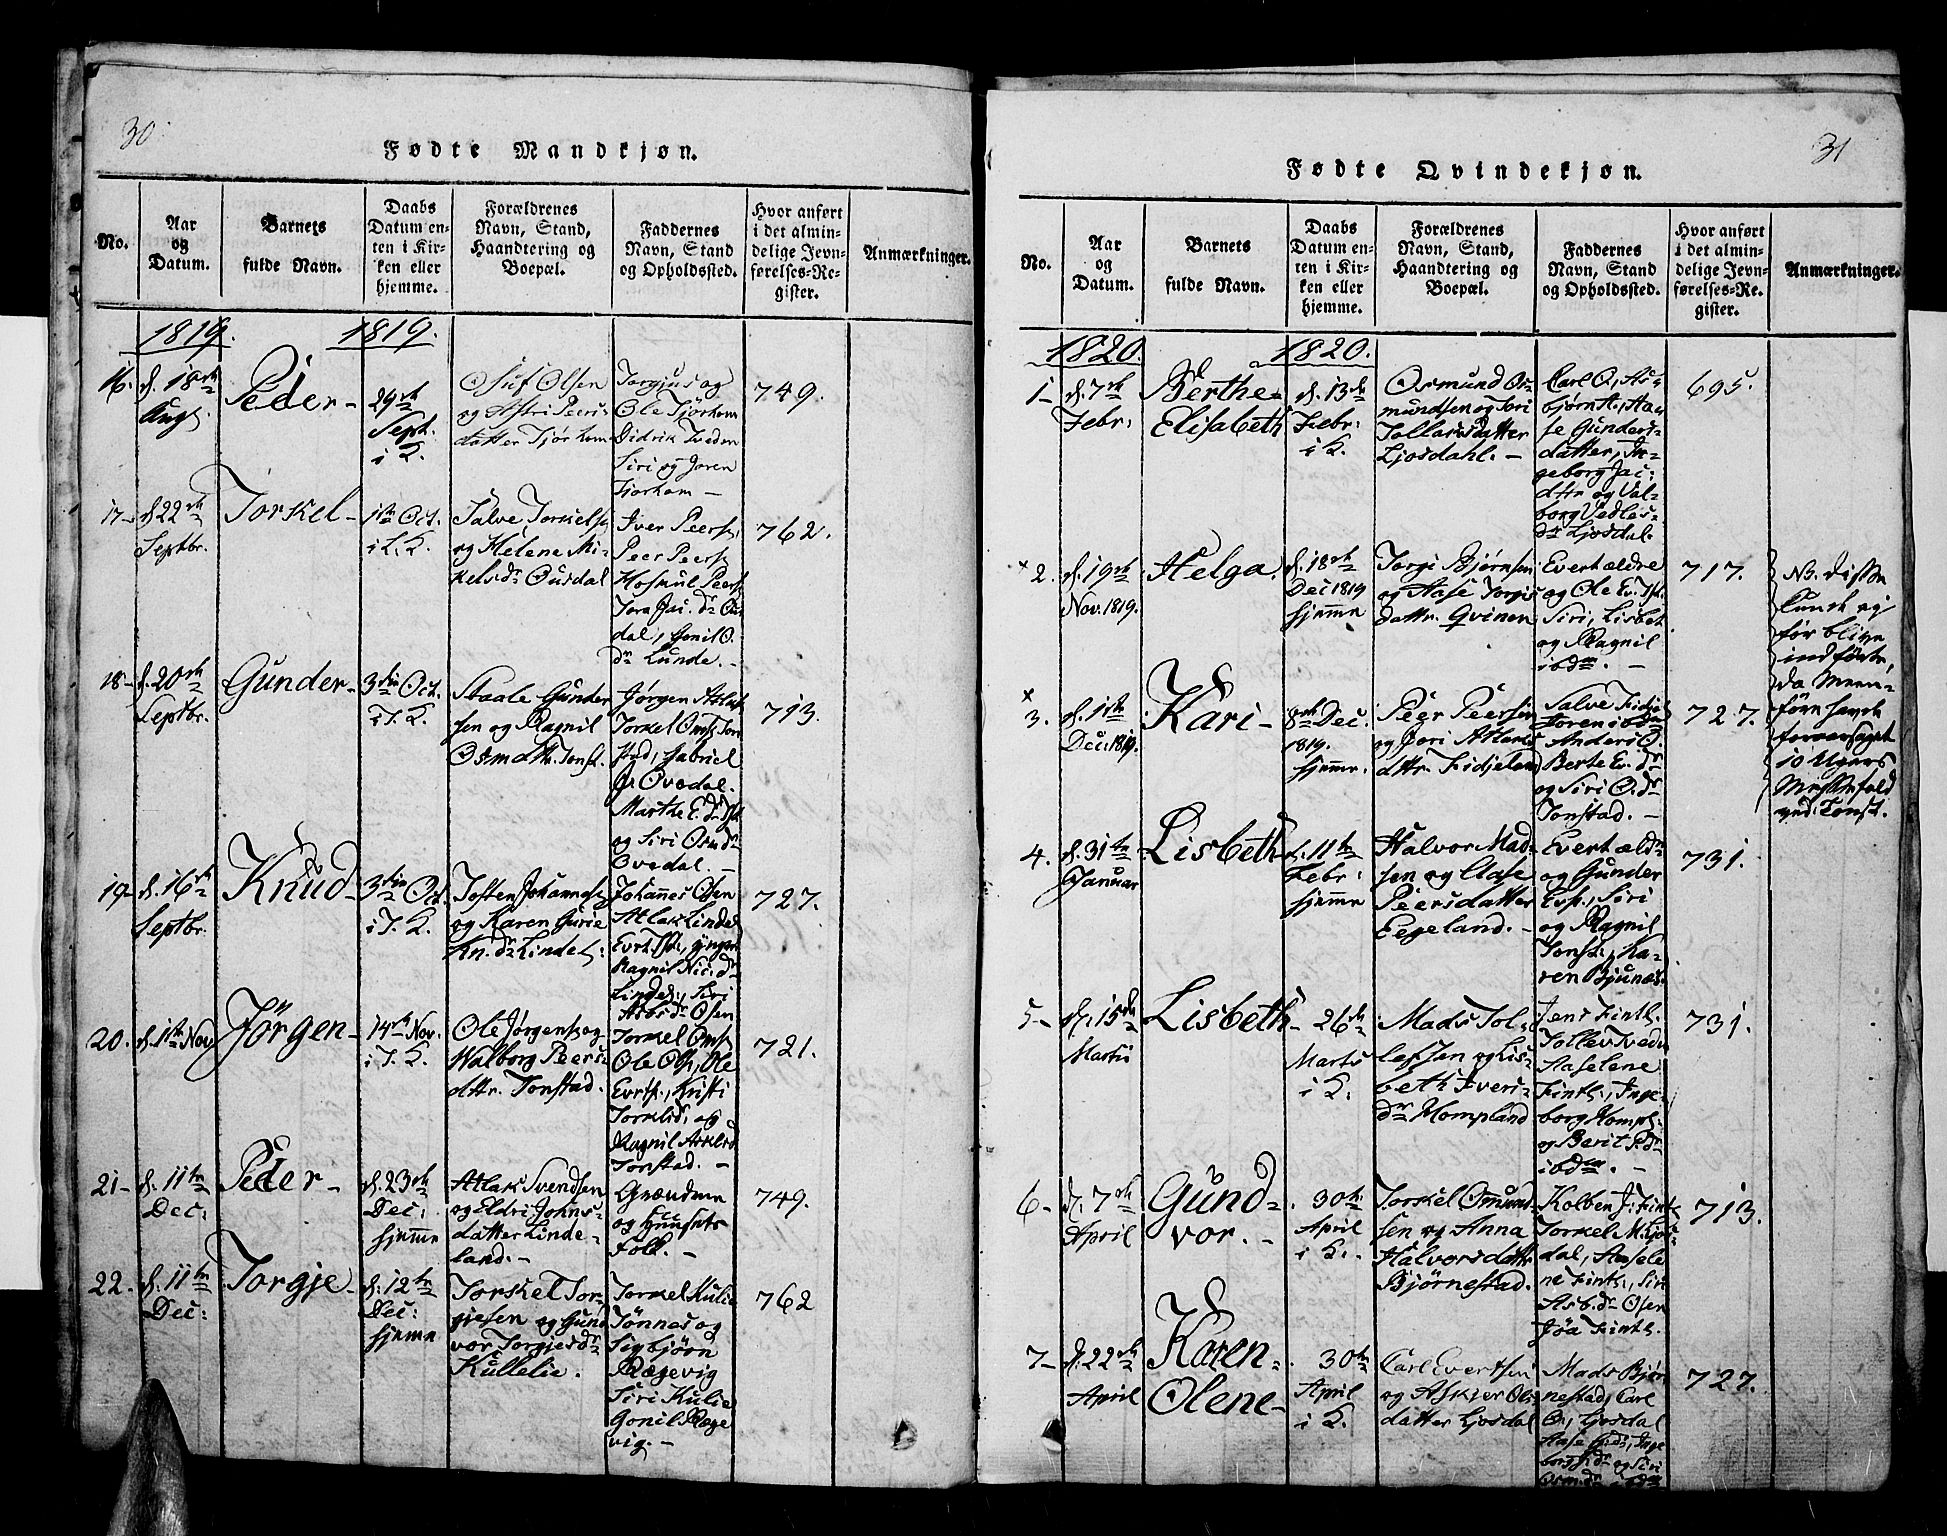 30
Fødte Mandkjøn.
No.
Aar
og
Datum.
Barnets
fulde Navn.
Daabs
Datum en-
ten i Kir-
ken eller
hjemme.
Forældrenes
Navn, Stand,
Haandtering og
Boepæl.
Faddernes
Navn, Stand
og Opholdssted.
Hvor anført
i det almin-
delige Jevn-
førelses-Re-
gister.
Anmærkninger.
1819.
1819.
16.
d. 18de
Aug
Peder-
29de
Sept.
i K.
Osuf Olsen
og Astri Peers
datter Tjørhom
Torgjus og
Ole Tjørhom
Didrik Tveden
Siri og Joren
Tjorhom -
749.
17-
d. 22de
Septbr.
Torkel-
1te Oct.
i L. K.
Salve Torkels.
og Helene Mi-
kelsdr Ousdal
Iver Peers.
Peer Peers.
Tora Jac. dr Ou
dal, Gonil O.
dr Lunde. -
762.
18-
d. 20de
Septbr.
Gunder-
3die Oct.
i T. K.
Staale Gunder
sen og Ragnil
Osmdttr. Tonst.
Jørgen Atlak
stad, Gabriel
J. Ovedal.
og Siri Osmdr
Ovedal -
713.
19-
d. 16de
Septbr.
Knud-
3die Oct.
i T. K.
Tosten Johannes
og Karen Gurie
Kn. dr Lindel:
Johannes Osen
Atlak Lindel
Ragnil Nic. dr
Lindel., Siri
Asbdr Osen
727.
20.
d. 1ste Nov
Jørgen-
14de Nov.
i T. K.
Ole Jørgens. og
Walborg Peers
dttr. Tonstad.
Torkel Oms.
Ole Ols., Ole
Evrts., Kristi
Torklsd. og
Ragnil Asklsd
Tonstad. -
721.
21-
d. 11te
Dec:
Peder-
d. 23de
Dec:
hjemme
Atlak Svendsen
og Eldri Johns-
datter Linde-
land. -
Grændene
og Huusets
Folk. -
749.
22.
d. 11te
Dec:
Torgje-
d. 12te
Dec:
hjemme
Torkel Tor-
giesen og Gund
vor Torgjesdr
Kullelie.
Torkel Kulie
Tønnes og
Sigbjørn
Rægevig
Siri Kulie
Gonil Ræge
vig. -
762
31
Fødte Qvindekjøn.
No.
Aar
og
Datum.
Barnets
fulde Navn.
Daabs
Datum en-
ten i Kir-
ken eller
hjemme.
Forældrenes
Navn, Stand,
Haandtering og
Boepæl.
Faddernes
Navn, Stand
og Opholdssted.
Hvor anført
i det almin-
delige Jevn-
førelses-Re-
gister.
Anmærkninger.
1820.
1820.
1-
d. 7de
Febr:
Berthe
Elisabeth
d. 13de
Febr:
i K.
Osmund Os-
mundsen og Siri
Tollaksdatter
Ljosdahl. -
Carl O., As-
bjørn A., Aa-
se Gunders-
datter, In-
geborg Jac:
dttr og Val-
borg Vedles-
dr Ljosdal.
695.
2.
d. 19de
Nov. 1819.
Helga.
d. 18de
Dec 1819
hjemme
Torgi Bjørnsen
og Aase Torgis
dattr. Qvinen
Evert ældre
og Ole Ev. Tst.
Siri, Lisbet
og Ragnil
ibdm. -
717.
NB. disse
kunde ei
før blive
indførte,
da Meen-
føre havde
foraarsaget
10 Ugers
Messefald
ved Tonst.
3.
d. 1ste
Dec: 1819.
Kari-
8de Dec.
1819.
hjemme.
Peer Peersen
og Jori Atlaks
dttr. Fidjeland
Salve Fidje
Joren ibdm
Anders O.
Berte Ev. dr
og Siri O. dr
Tonstad. -
727.
4.
d. 31te
Januar
Lisbeth
d. 11te
Febr:
hjemme
Halvor Mad
sen og Aase
Peersdatter
Eegeland. -
Evert ældre
og Gunder
Esp., Siri
og Ragnil
Tonst., Ka-
ren Bjunes.
731.
5-
d. 15de
Martii
Lisbeth-
26de
Marts
i K.
Mads Tol-
lefsen og Lis-
beth Ivers-
dr Hompland
Jens Fintl.
Tollev Tveden
Aaselene
Fintl., Inge-
borg Hompl.
og Berit P. dr
ibdm. -
731.
6-
d. 7de
April
Gund-
vor. -
30te
April
i K.
Torkel Osmund
sen og Anna
Halvorsdattr
Bjørnestad.
Kolben J. Fintl
Torkel M. Ljos-
dal, Aasele-
ne Fintl., Siri
Asb. dr Osen
Jøa Fintl.
713.
7-
d. 22de
April
Karen-
Olene-
30te
April
i K.
Carl Evertsen
og Askier Ols
datter Ljosdal
Mads Bjør
nestad, Carl
O., Ljosdal
727.